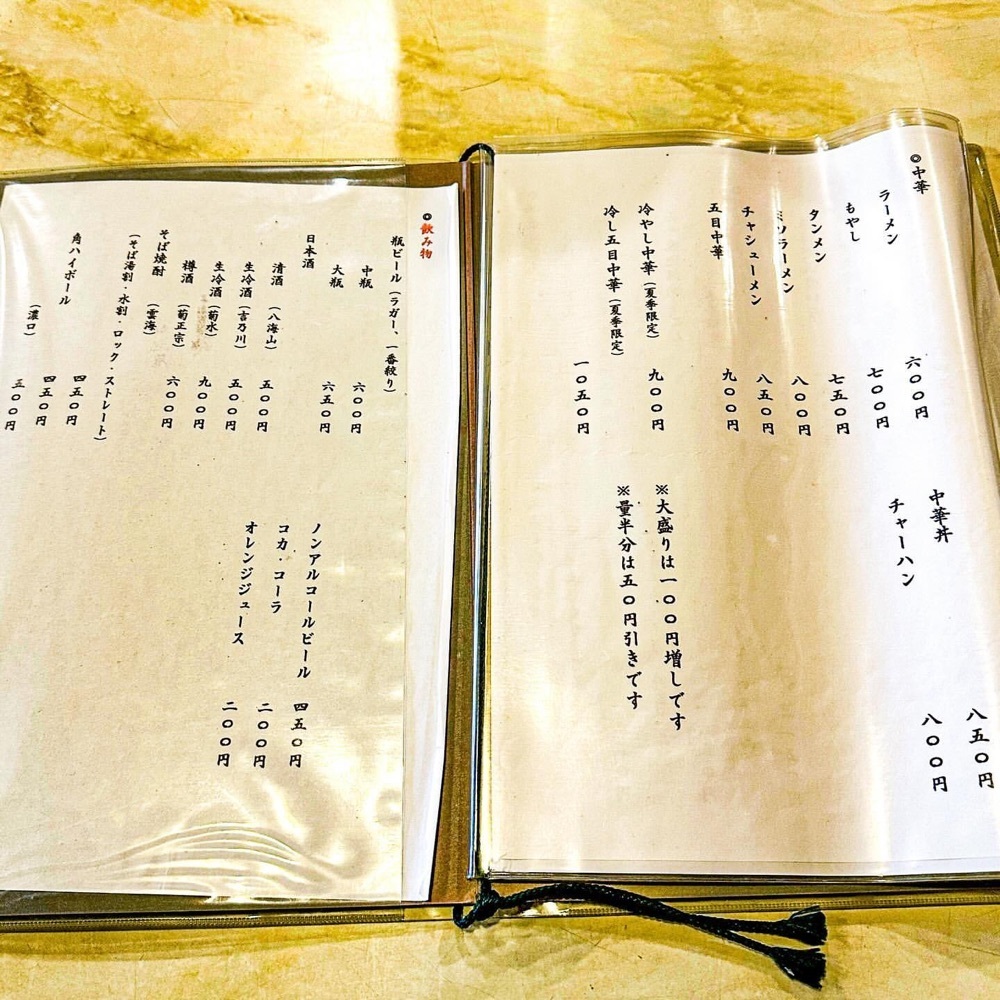 ◎中華
ラーメン 六〇〇円
もやし 七〇〇円
タンメン 七五〇円
ミソラーメン 八〇〇円
チャシューメン 八五〇円
五目中華 九〇〇円
冷やし中華（夏季限定） 九〇〇円
冷し五目中華（夏季限定） 一〇五〇円
中華丼 八五〇円
チャーハン 八〇〇円
※大盛りは一〇〇円増しです
※量半分は五〇円引きです
◎飲み物
瓶ビール（ラガー、一番絞り）
中瓶 六〇〇円
大瓶 六五〇円
日本酒
清酒（八海山） 五〇〇円
生冷酒（吉乃川） 五〇〇円
生冷酒（菊水） 九〇〇円
樽酒（菊正宗） 六〇〇円
そば焼酎（雲海）
（そば湯割・水割・ロック・ストレート） 四五〇円
角ハイボール 四五〇円
（濃口） 五〇〇円
ノンアルコールビール 四五〇円
コカ・コーラ 二〇〇円
オレンジジュース 二〇〇円